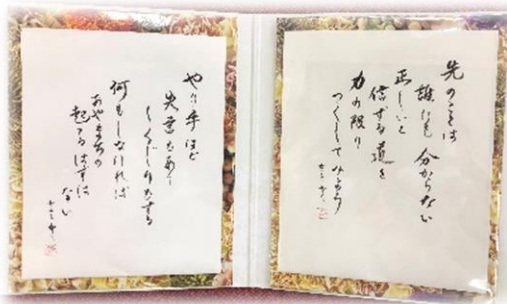 先のことは
誰にも分からない
正しいと
信ずる道を
力の限り
つくしてみよう
やり手ほど
失差もあり
しくじりもする
何もしなければ
あやまちの
起るはずは
ない